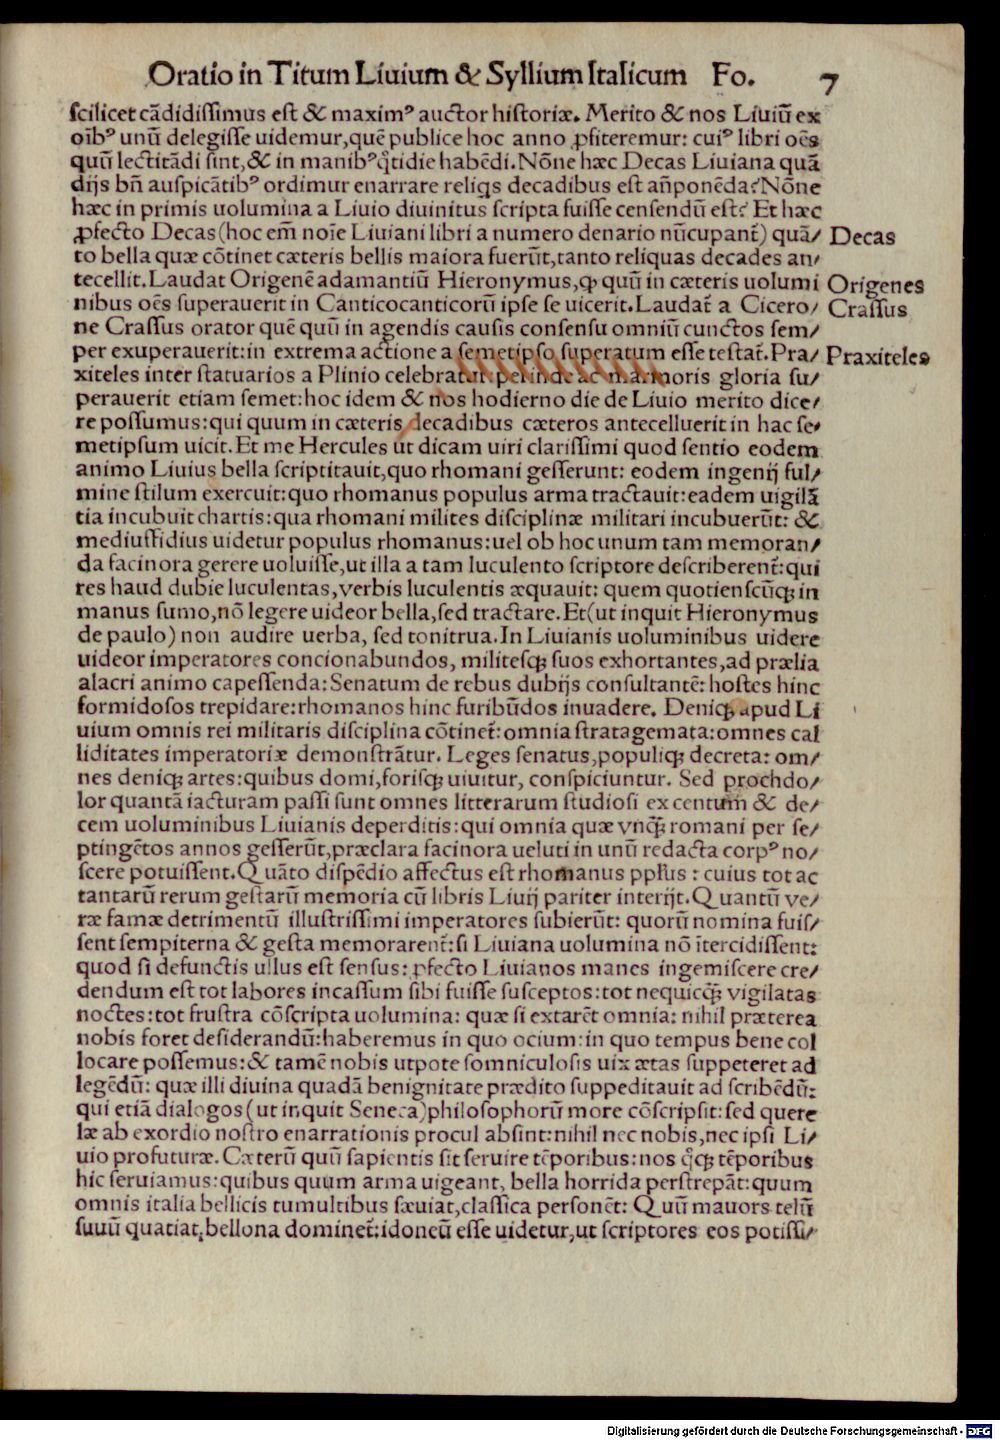 Oratio in Titum Liuium & Syllium Italicum Fo. 7
scilicet cādidissimus est & maximꝰ auctor historiæ. Merito & nos Liuiū ex
oībꝰ unū delegisse uidemur, quē publice hoc anno ꝓfiteremur: cuiꝰ libri oēs
quū lectitādi sint, & in manibꝰ q̄tidie habēdi. Nōne hæc Decas Liuiana quā
dijs bn̄ auspicātibꝰ ordimur enarrare reliqs decadibus est an̄ponēda? Nōne
hæc in primis uolumina a Liuio diuinitus scripta fuisse censendū est? Et hæc
ꝓfecto Decas (hoc em̄ noīe Liuiani libri a numero denario nūcupant̄) quā/
Decas
to bella quæ cōtinet cæteris bellis maiora fuerūt, tanto reliquas decades an/
tecellit. Laudat Origenē adamantiū Hieronymus, ꝙ quū in cæteris uolumi
Origenes
nibus oēs superauerit in Canticocanticorū ipse se uicerit. Laudat̄ a Cicero/
Crassus
ne Crassus orator quē quū in agendis causis consensu omniū cunctos sem/
per exuperauerit: in extrema actione a semetipso superatum esse testat̄. Pra/
Praxiteles
xiteles inter statuarios a Plinio celebratur perinde ac marmoris gloria su/
perauerit etiam semet: hoc idem & nos hodierno die de Liuio merito dice/
re possumus: qui quum in cæteris decadibus cæteros antecelluerit in hac se/
metipsum uicit. Et me Hercules ut dicam uiri clarissimi quod sentio eodem
animo Liuius bella scriptitauit, quo rhomani gesserunt: eodem ingenij ful/
mine stilum exercuit: quo rhomanus populus arma tractauit: eadem uigilā
tia incubuit chartis: qua rhomani milites disciplinæ militari incubuerūt: &
mediusfidius uidetur populus rhomanus: uel ob hoc unum tam memoran/
da facinora gerere uoluisse, ut illa a tam luculento scriptore describerent̄: qui
res haud dubie luculentas, verbis luculentis æquauit: quem quotienscūqȝ in
manus sumo, nō legere uideor bella, sed tractare. Et (ut inquit Hieronymus
de paulo) non audire uerba, sed tonitrua. In Liuianis uoluminibus uidere
uideor imperatores concionabundos, militesqȝ suos exhortantes, ad prælia
alacri animo capessenda: Senatum de rebus dubijs consultantē: hostes hinc
formidosos trepidare: rhomanos hinc furibūdos inuadere. Deniqȝ apud Li
uium omnis rei militaris disciplina cōtinet̄: omnia stratagemata: omnes cal
liditates imperatoriæ demonstrātur. Leges senatus, populiqȝ decreta: om/
nes deniqȝ artes: quibus domi, forisqȝ uiuitur, conspiciuntur. Sed prochdo/
lor quantā iacturam passi sunt omnes litterarum studiosi ex centum & de/
cem uoluminibus Liuianis deperditis: qui omnia quæ vnq̄ȝ romani per se/
ptingētos annos gesserūt, præclara facinora ueluti in unū redacta corpꝰ no/
scere potuissent. Quāto dispēdio affectus est rhomanus ppłus: cuius tot ac
tantarū rerum gestarū memoria cū libris Liuij pariter interijt. Quantū ve/
ræ famæ detrimentū illustrissimi imperatores subierūt: quorū nomina fuis/
sent sempiterna & gesta memorarent̄: si Liuiana uolumina nō ītercidissent:
quod si defunctis ullus est sensus: ꝓfecto Liuianos manes ingemiscere cre/
dendum est tot labores incassum sibi fuisse susceptos: tot nequicq̄ȝ vigilatas
noctes: tot frustra cōscripta uolumina: quæ si extarēt omnia: nihil præterea
nobis foret desiderandū: haberemus in quo ocium: in quo tempus bene col
locare possemus: & tamē nobis utpote somniculosis uix ætas suppeteret ad
legēdū: quæ illi diuina quadā benignitate prædito suppeditauit ad scribēdū:
qui etiā dialogos (ut inquit Seneca) philosophorū more cōscripsit: sed quere
læ ab exordio nostro enarrationis procul absint: nihil nec nobis, nec ipsi Li/
uio profuturæ. Cæterū quū sapientis sit seruire tēporibus: nos q̊qȝ tēporibus
hic seruiamus: quibus quum arma uigeant, bella horrida perstrepāt: quum
omnis italia bellicis tumultibus sæuiat, classica personēt: Quū mauors telū
suuū quatiat, bellona dominet̄: idoneū esse uidetur, ut scriptores eos potissi/
Digitalisierung gefördert durch die Deutsche Forschungsgemeinschaft - DFG